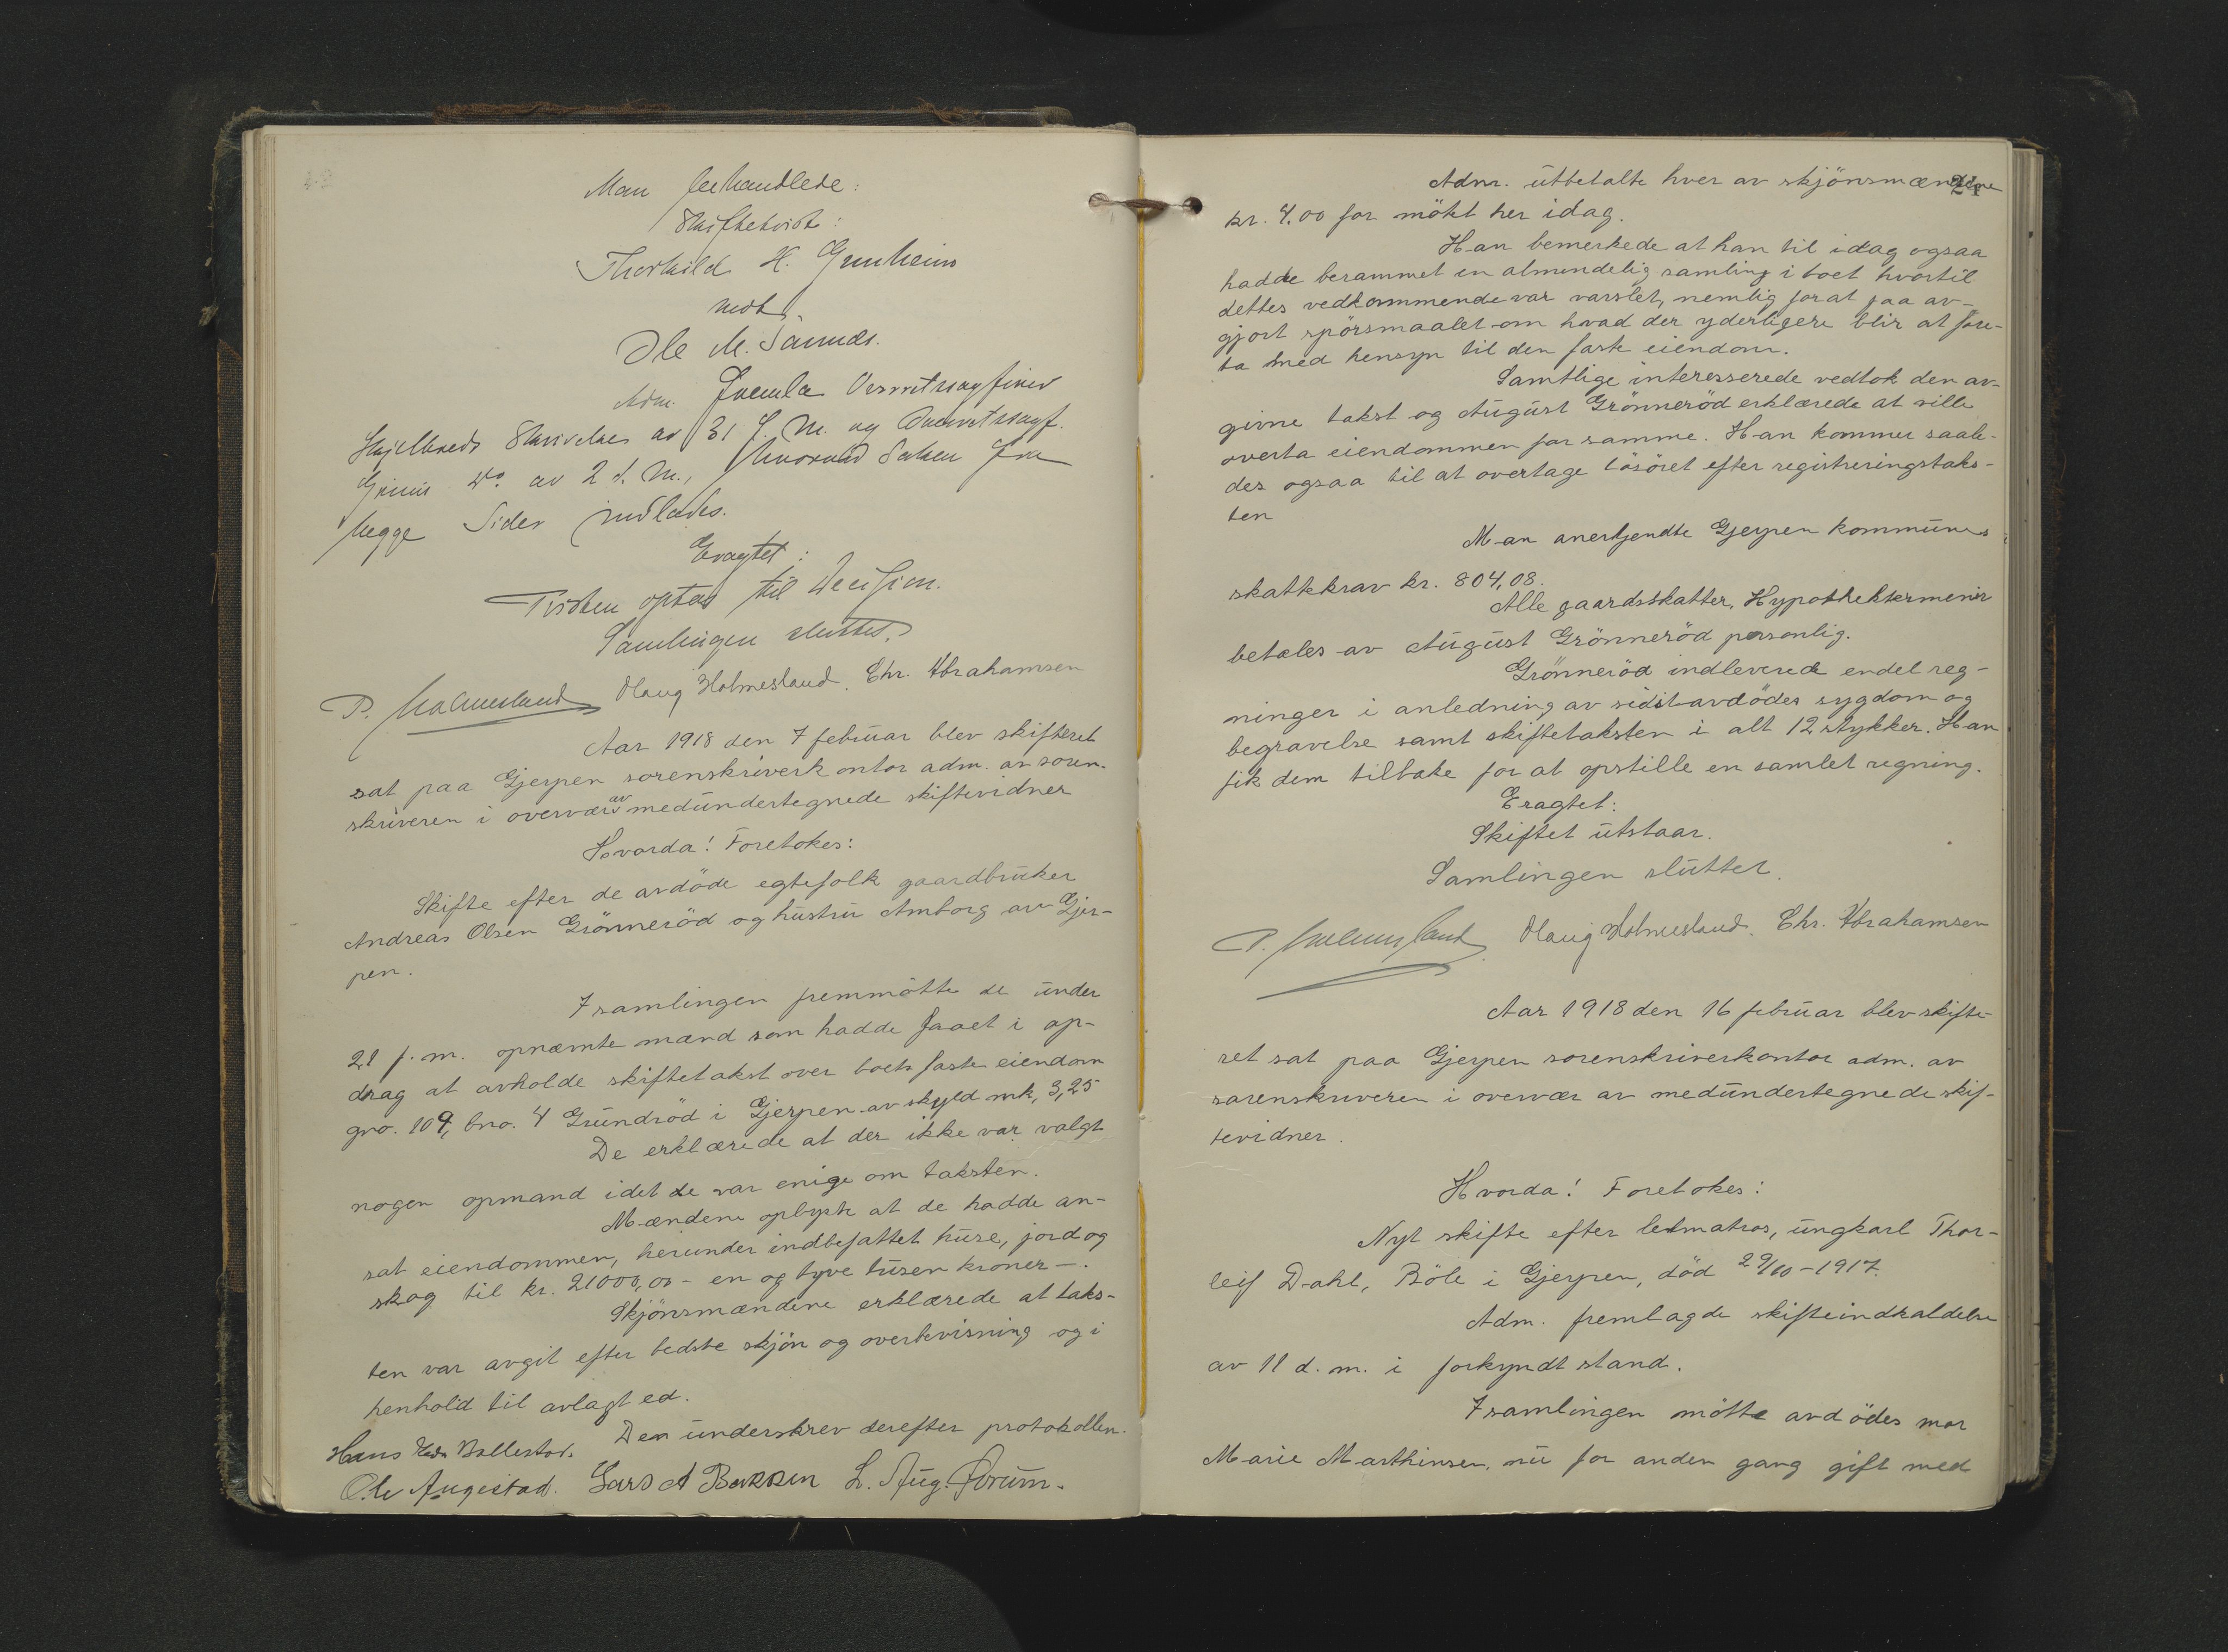 Man behandlede:
Skiftetvist:
Thorkild H. Gunheim
mot
Ole M.
Adm.
Skrivelse av 31 f. M. og
do av 2 d. M.,
begge Sider indlades.
Eragtet:
Tvisten optas til Decision.
Samlingen sluttet.
P. Holmesland Olaug Holmesland. Chr. Abrahamsen
Aar 1918 den 7 februar blev skifteret
sat paa Gjerpen sorenskriverkontor adm. av soren-
skriveren i overvær av medundertegnede skiftevidner
Hvorda! Foretokes:
Skifte efter de avdöde egtefolk gaardbruker
Andreas Olsen Grönneröd og hustru Amborg av Gjer-
pen.
I samlingen fremmötte de under
21 f. m. opnæmte mænd som hadde faaet i op-
drag at avholde skiftetakst over boets faste eiendom
gno. 109, bno. 4 Grundröd i Gjerpen av skyld mk, 3,25
De erklærede at der ikke var valgt
nogen opmand idet de var enige om taksten.
Mændene oplyste at de hadde an-
sat eiendommen, herunder indbefattet huse, jord og
skog til kr. 21000,00 - en og tyve tusen kroner -.
Skjönsmændene erklærede at taks-
ten var avgit efter bedste skjön og overbevisning og i
henhold til avlagt ed.
De underskrev derefter protokollen.
Hans Ballestad.
Ole Augestad. Lars A Bakken L. Aug. Borum.
24
Adm. utbetalte hver av skjönsmændene
kr. 4,00 for mökt her idag.
Han bemerkede at han til idag ogsaa
hadde berammet en almindelig samling i boet hvortil
dettes vedkommende var varslet, nemlig for at faa av-
gjort spörsmaalet om hvad der yderligere blir at fore-
ta med hensyn til den faste eiendom.
Samtlige interesserede vedtok den av-
givne takst og August Grönneröd erklærede at ville
overta eiendommen for samme. Han kommer saale-
des ogsaa til at overtage lösöret efter registreringstaks-
ten
Man anerkjendte Gjerpen kommunes
skattkrav kr. 804,08.
Alle gaardsskatter, Hypothektermenin
betales av August Grönneröd personlig.
Grönneröd indleverede endel reg-
ninger i anledning av sidstavdödes sygdom og
begravelse samt skiftetaksten i alt 12 stykker. Han
fik dem tilbake for at opstille en samlet regning.
Eragtet:
Skiftet utstaar.
Samlingen sluttet.
P. Holmesland Olaug Holmesland. Chr. Abrahamsen
Aar 1918 den 16 februar blev skifte-
ret sat paa Gjerpen sorenskriverkontor adm. av
sorenskriveren i overvær av medundertegnede skif-
tevidner.
Hvorda! Foretokes:
Nyt skifte efter letmatros, ungkarl Thor-
leif Dahl, Böle i Gjerpen, död 29/10-1917.
Adm. fremlagde skifteindkaldelse
av 11 d. m. i forkyndt stand.
I samlingen mötte avdödes mor
Marie Marthinsen, nu for anden gang gift med